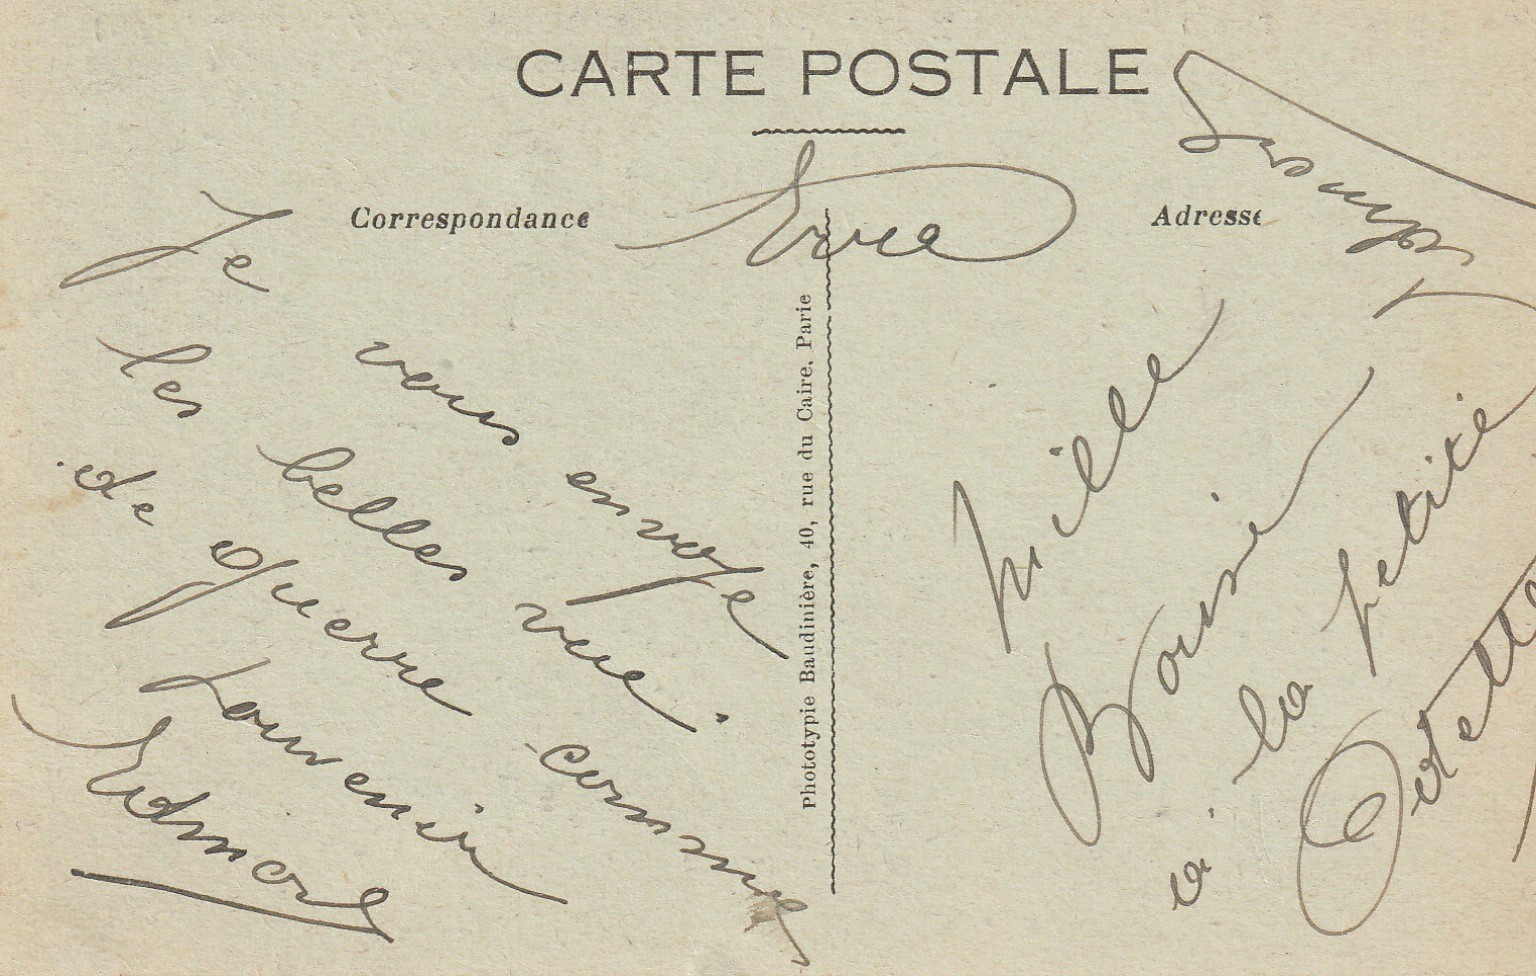 CARTE POSTALE
Correspondance
Adresse
Je vous envoye
les belles vue.
de guerre comme
souvenir
Edmond
Phototypie Baudinière, 40, rue du Caire, Paris
Mille
Baiser
a la petite
Odette